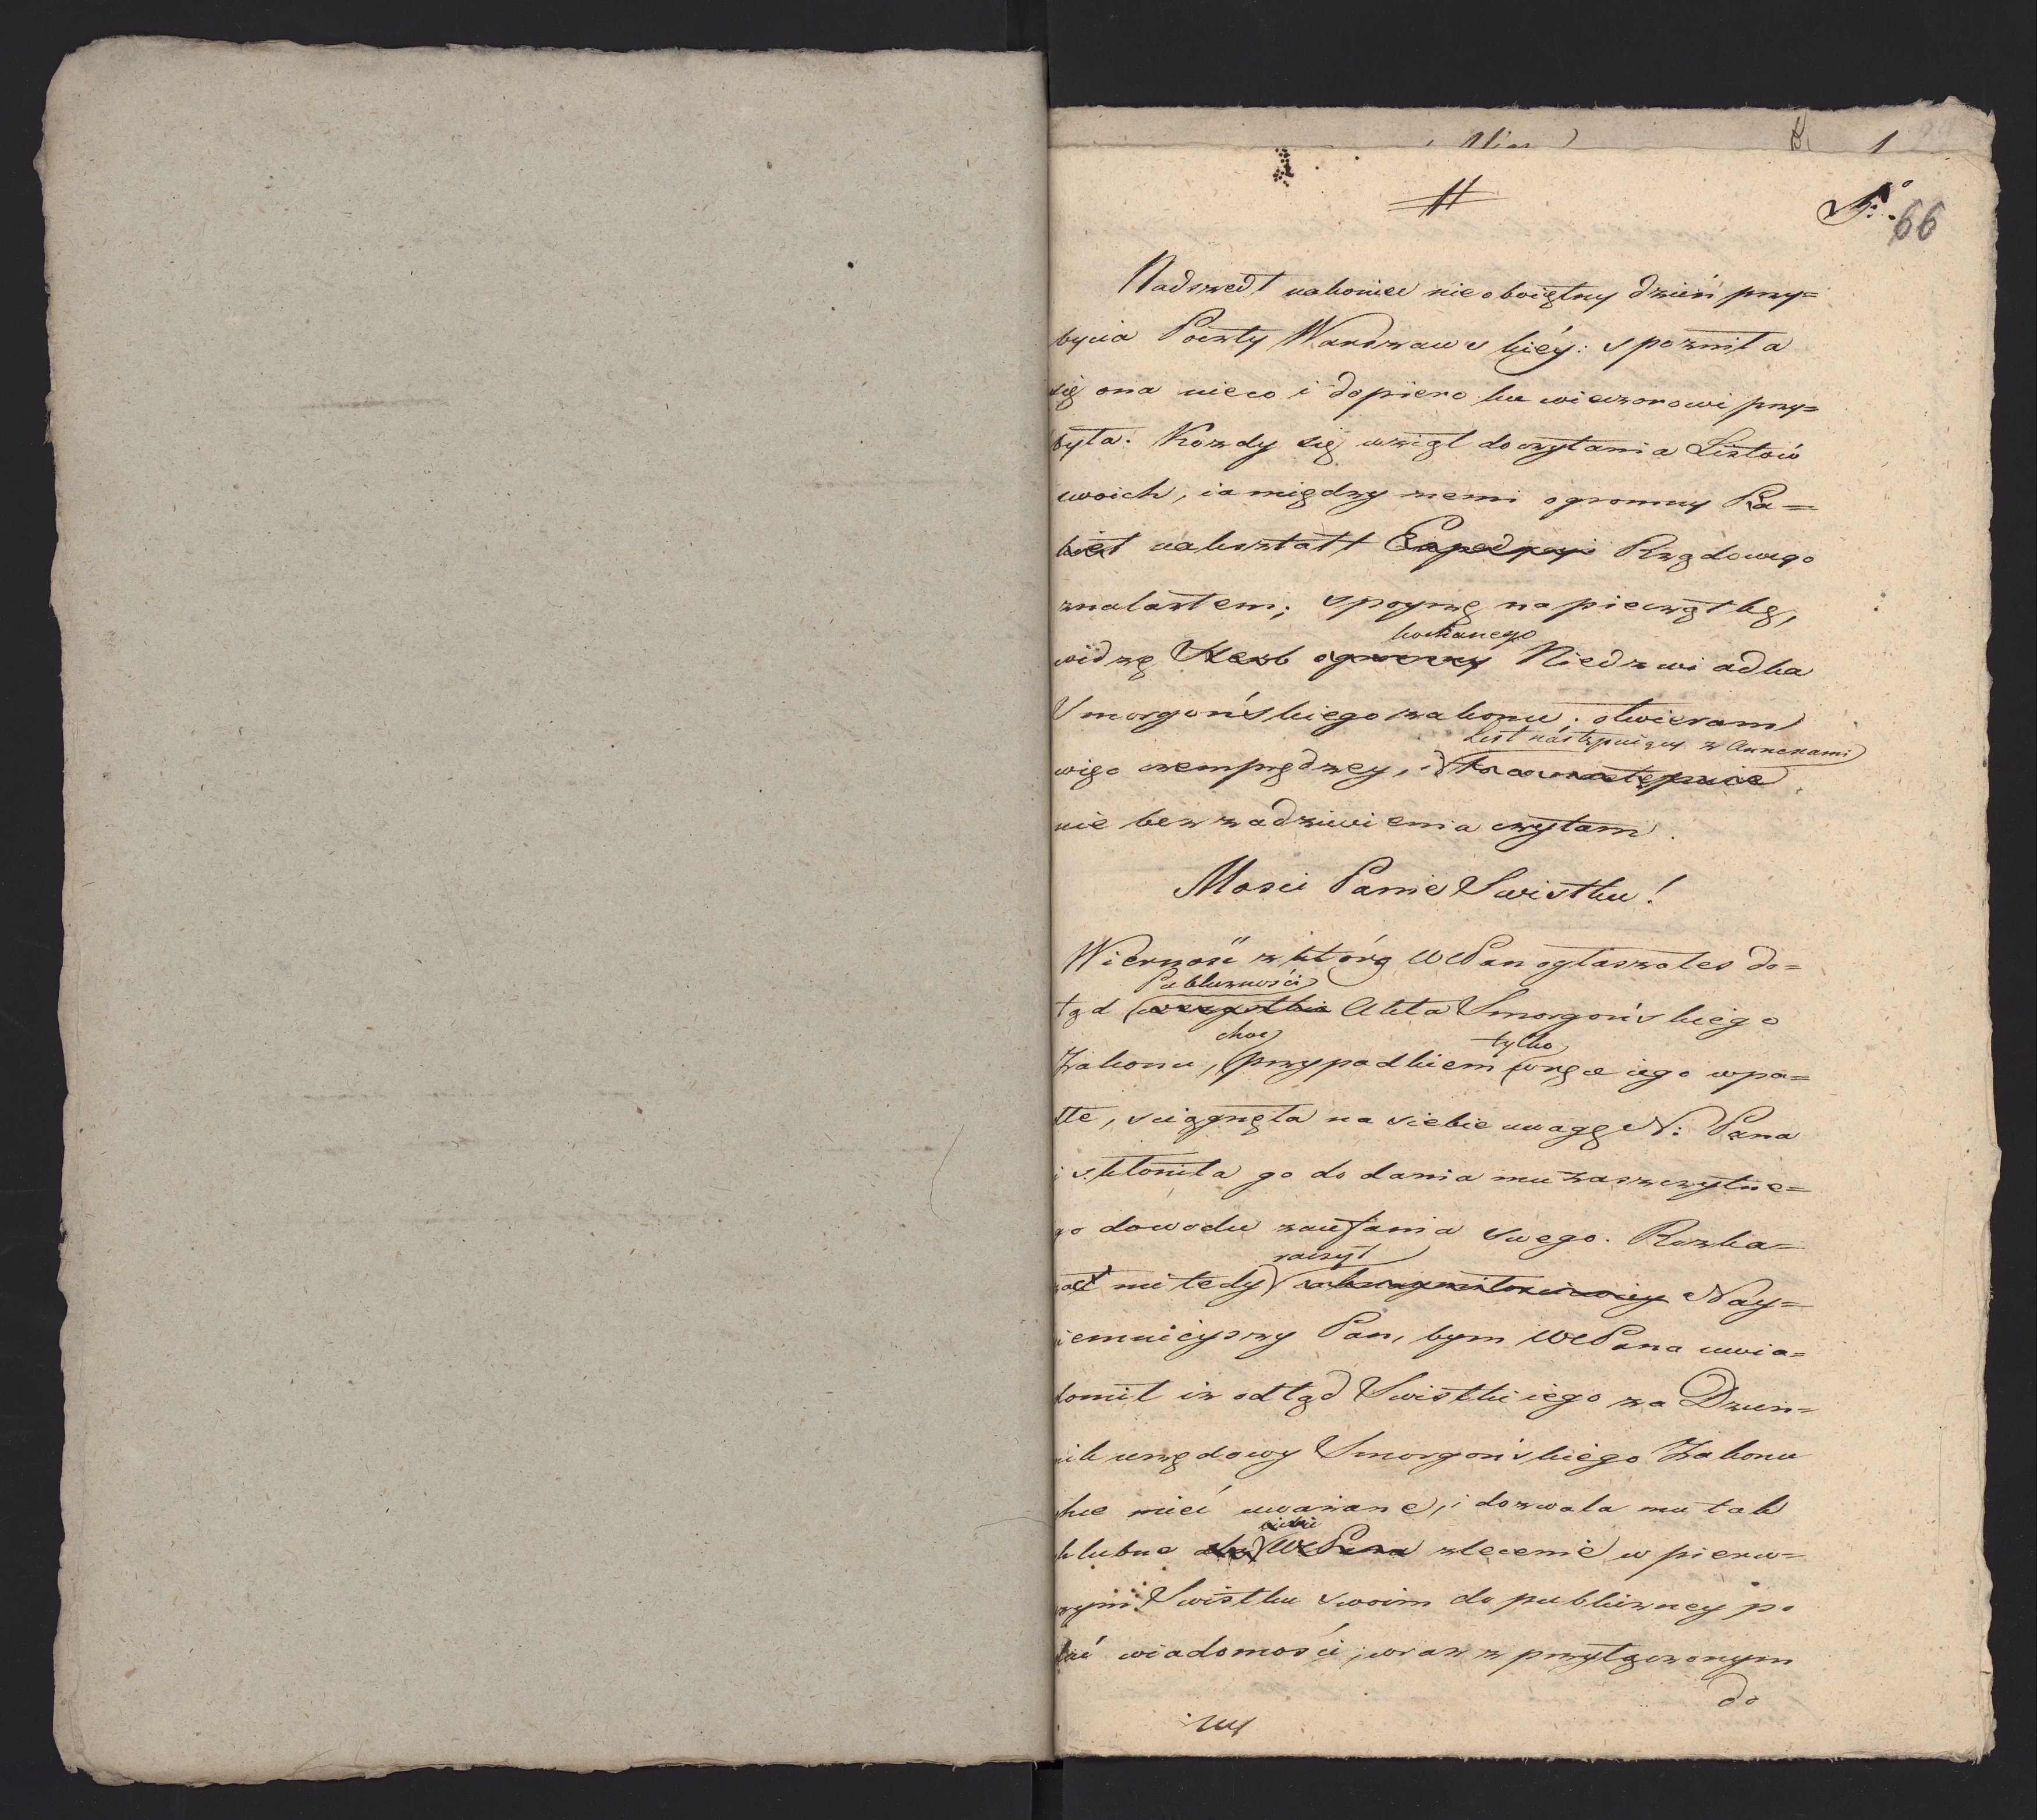 1
66
Nadszedł nakoniec nieoboiętny dzień przy=
bycia Poczty Warszawskiéy: spoznila
się ona nieco i dopiero ku wieczorowi przy=
była. Kozdy się wziął do czytania Listów
swoich, ia między nemi ogromny Pa=
kiet nakształt Expedycyi Rządowego
znalazłem; spoyrzę na pieczątkę,
kochanego
widzę Herb ogromny Niedzwiadka
Smorgońskiego zakonu; otwieram
List następuiący z Annexami
więc czemprędzey, i
nie bez zadziwienia czytam.
Mosci Panie Swistku!
Wierność z którą WPan ogłaszales do=
Publicznosci
tąd wszystkie Akta Smorgońskiego
choc tylko
Zakonu, przypadkiem w ręce iego wpa=
dłe, sciągnęła na siebie uwagę N: Pana
i skłonila go do dania mu zaszczytne=
go dowodu zaufania swego. Rozka=
raczył
zać mi tedy Nay=
iemnieyszy Pan, bym WPana uwia=
domil iz odtąd Swistki iego za Dzien=
nik urzędowy Smorgońskiego Zakonu
chce mieć uważane, i dozwala mu tak
siebie
chlubne dla WPana zlecenie w pierw=
szym Swistku swoim do publiczney po
dać wiadomości, wraz z przyłączonym
do